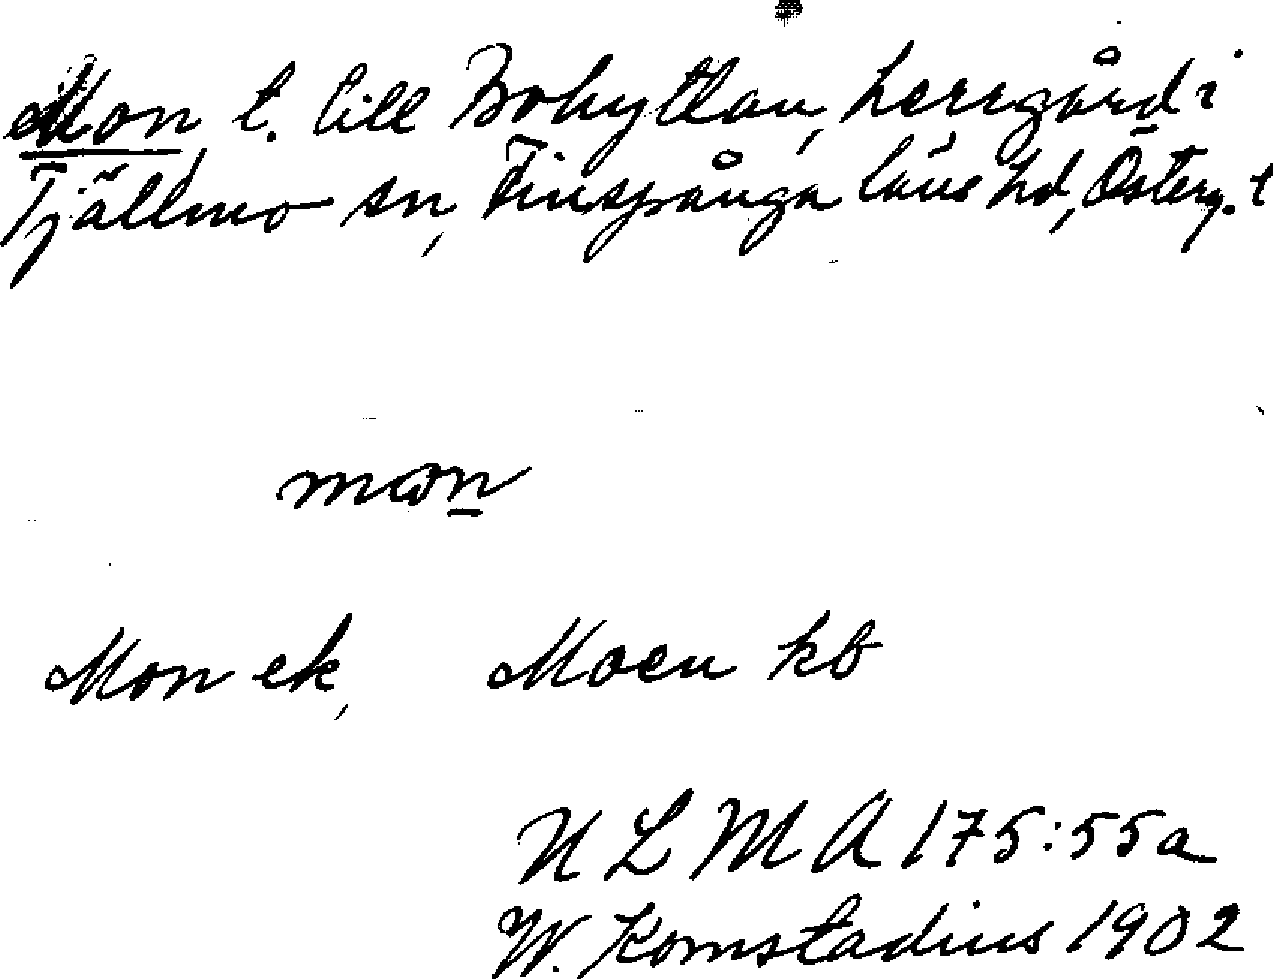 Mon t. till Bohyttan, herrgård i
Tjällmo sn, Finspånga läns hd, Österg. l
mωn
Mon ek, Moen kb
ULMA 175:55a
W. Komstadius 1902